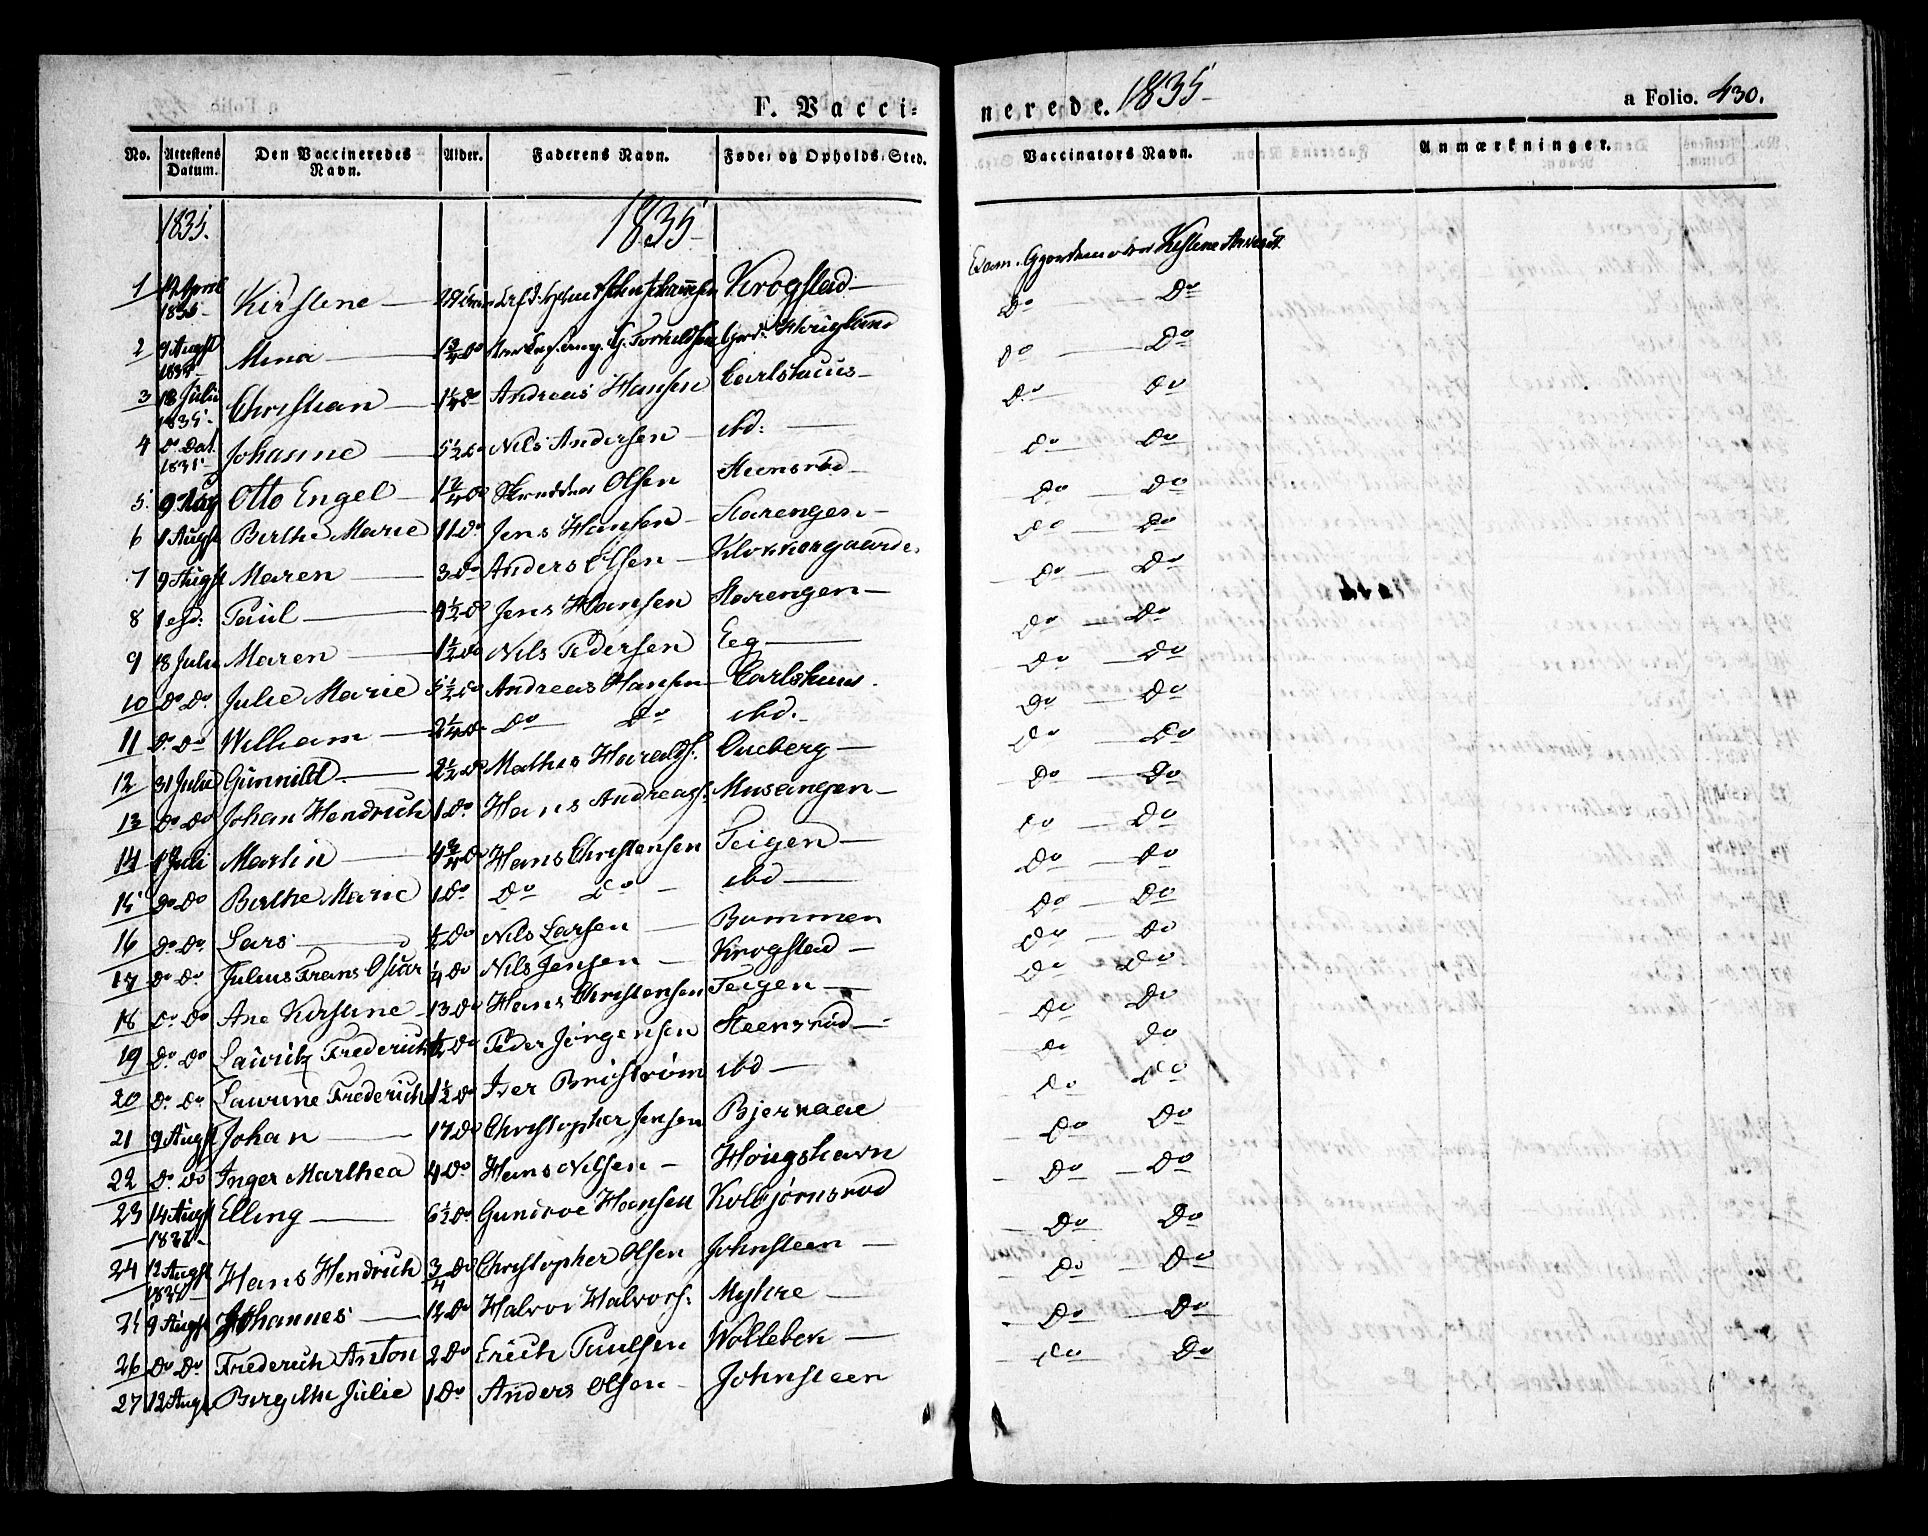 F. Vacci-
nerede. 1835
a Folio. 430.
No. Attestens Datum. Den Vaccineredes Navn. Alder. Faderens Navn. Føde- og Opholds-Sted. Vaccinators Navn. Anmærkninger.
1835. 1835
Exam. Gjordemoder Kistine
1 12 April 1835 Kirstine Krogstad Do Do
2 9 Augst Mina 1 3/4 Do Do Do
3 18 Julii 1835 Christian 1 1/4 Do Andreas Hansen Carlshuus Do Do
4 Do Dat. 1835 Johanne 5 1/2 Do Nils Andersen ibd: Do Do
5. 9 Aug Otto Engel Olsen Steensrød Do Do
6 1 Augst Berthe Marie 11 Do Jens Hansen Starengen Do Do
7 9 Augst Maren 3 Do Anders Olsen Klokkergaarde Do Do
8 1 Paul 9 1/2 Do Jens Hansen Starengen Do Do
9 18 Julii Maren 1 1/2 Do Nils Pedersen Eeg Do Do
10 Do Do Julie Marie 5 1/2 Do Andreas Hansen Carlshuus Do Do
11 Do Do Wilham 2 1/4 Do Do Do ibd. Do Do
12 31 Julii Gunnild 2 1/2 Do Mathis Haralds: Do Do
13 Do Do Johan Hendrich 1 Do Hans Andreass: Musangen Do Do
14 1 Juli Martin 4 3/4 Do Hans Christensen Teigen Do Do
15 Do Do Berthe Marie 1 Do Do Do ibd Do Do
16 Do Do Lars 1/2 Do Nils Larsen Bommen Do Do
17 Do Do Julius Frans Oscar 1/4 Do Nils Jensen Krogstad Do Do
18 Do Do Ane Kirstine 13 Do Hans Christensen Teigen Do Do
19 Do Do Lauritz Frederich 1/2 Do Peder Jørgensen Steensrød Do Do
20 Do Do Laurine Frederich 1 1/2 Do Iver Brigstrøm ibd Do Do
21 9 Augst Johan 17 Do Christopher Jensen Bjernaae Do Do
22 Do Do Inger Marthea 4 Do Hans Nilsen Hougshavn Do Do
23 14 Augst Elling 6 1/2 Do Gunerøe Hansen Kolbjørnsrød Do Do
24 12 Augst Hans Hendrich 3/4 Do Christopher Olsen Johnsteen Do Do
25 9 Augst Johannes 12 Do Halvor Halvors: Myhre Do Do
26 Do Do Frederich Anton 2 Do Erich Paulsen Wolleben Do Do
27 12 Augst Birgitthe Julie 1 Do Anders Olsen Johnsteen